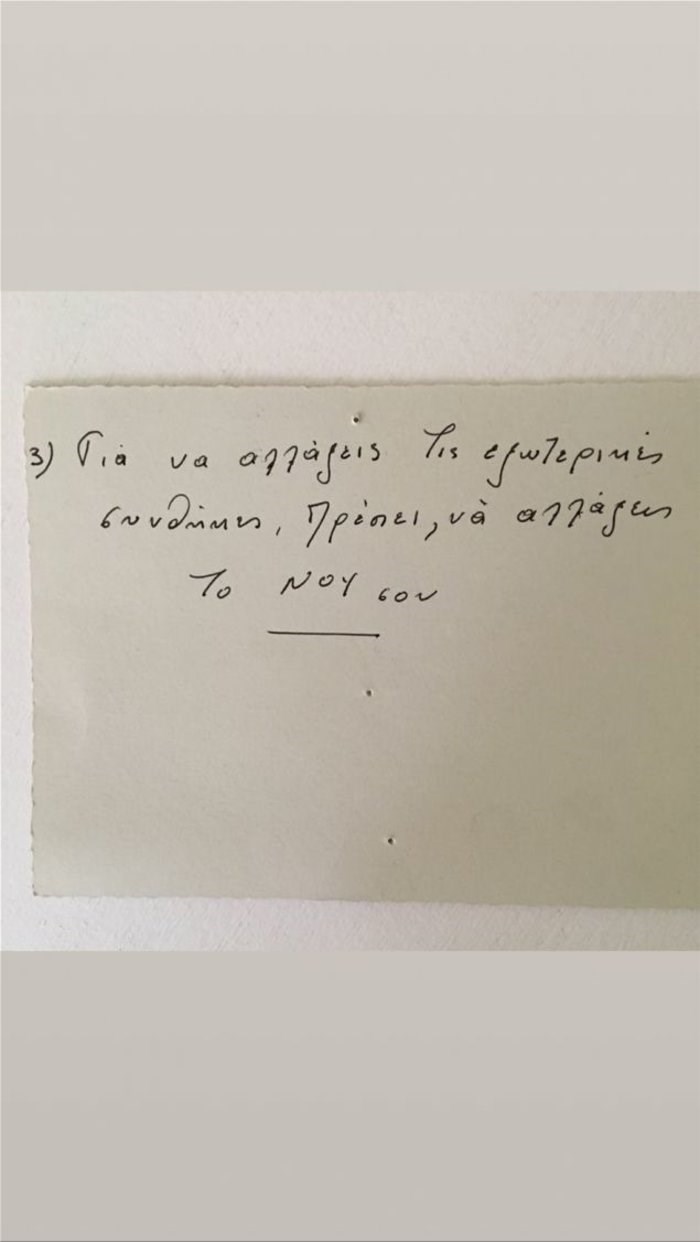 3) Γιὰ να αλλάξεις τις εξωτερικές
συνθήκες, πρέπει, νὰ αλλάξεις
το ΝΟΥ σου